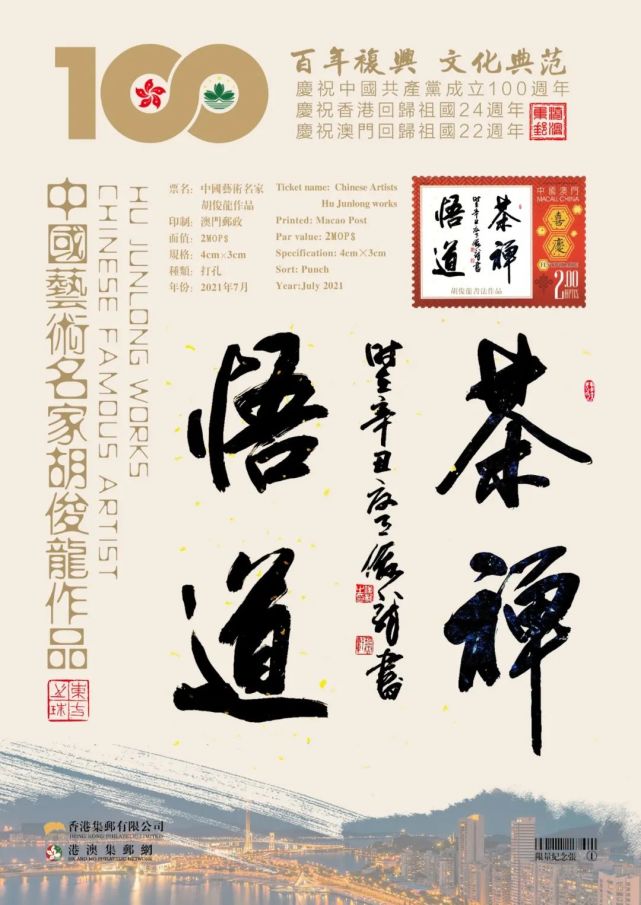 100
百年複興 文化典范
慶祝中國共產黨成立100週年
慶祝香港回歸祖國24週年
慶祝澳門回歸祖國22週年
中國藝術名家胡俊龍作品
HU JUNLONG WORKS
CHINESE FAMOUS ARTIST
票名：中國藝術名家
胡俊龍作品
印制：澳門郵政
面值：2MOP$
規格：4cm×3cm
種類：打孔
年份：2021年7月
Ticket name: Chinese Artists
Hu Junlong works
Printed: Macao Post
Par value: 2MOP$
Specification: 4cm×3cm
Sort: Punch
Year:July 2021
茶禪
悟道
中國澳門
MACAU, CHINA
喜慶
2.00
胡俊龍書法作品
茶禪
時在辛丑
書
悟道
香港集郵有限公司
HONG KONG PHILATELIC LIMITED
港澳集郵網
HK AND MO PHILATELIC NETWORK
限量紀念張 ①